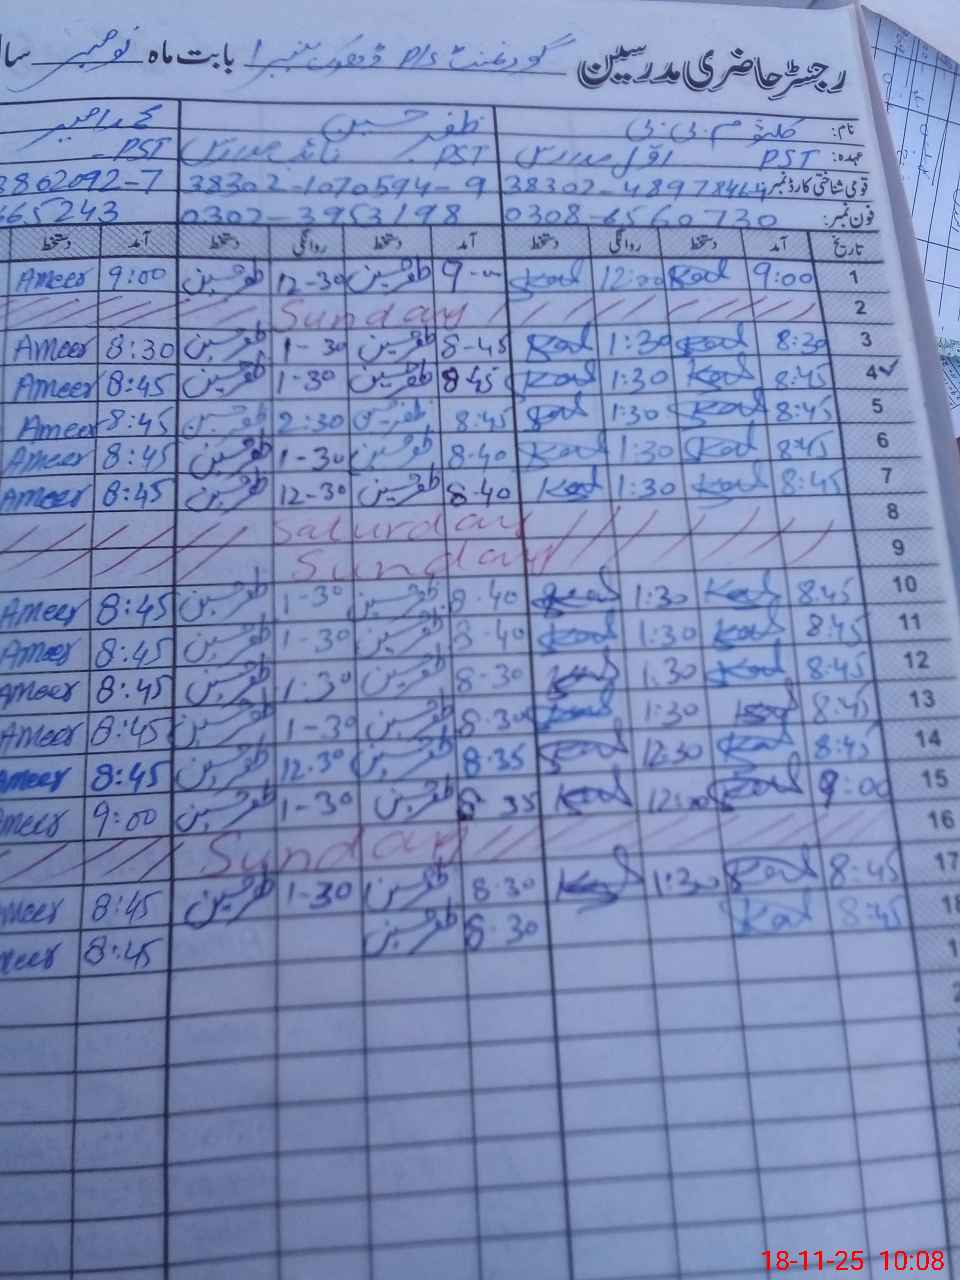 رجسٹر حاضری مدرسین گورنمنٹ P/S ڈھوک نمبر 1 بابت ماہ نومبر سا
نام: کلثوم بی بی ظفر حسین محمد امیر
عہدہ: PST اول مدرس PST نائب مدرس PST
قومی شناختی کارڈ نمبر 38302-1070594-9 3862092-7
فون نمبر: 0308-6560730 0302-3953198 665243
تاریخ آمد دستخط روانگی دستخط آمد دستخط روانگی دستخط آمد دستخط
1 9:00 Kod 12:00 Kod 9-00 ظفر حسین 12-30 ظفر حسین 9:00 Ameer
2 Sunday
3 8:30 Kod 1:30 Kod 8-45 ظفر حسین 1-30 ظفر حسین 8:30 Ameer
4 8:45 Kod 1:30 Kod 8-45 ظفر حسین 1-30 ظفر حسین 8:45 Ameer
5 8:45 Kod 1:30 Kod 8:45 ظفر حسین 2:30 ظفر حسین 8:45 Ameer
6 8:45 Kod 1:30 Kod 8-40 ظفر حسین 1-30 ظفر حسین 8:45 Ameer
7 8:45 Kod 1:30 Kod 8-40 ظفر حسین 12-30 ظفر حسین 8:45 Ameer
8 Saturday
9 Sunday
10 8:45 Kod 1:30 Kod 8-40 ظفر حسین 1-30 ظفر حسین 8:45 Ameer
11 8:45 Kod 1:30 Kod 8-40 ظفر حسین 1-30 ظفر حسین 8:45 Ameer
12 8:45 Kod 1:30 Kod 8-30 ظفر حسین 1:30 ظفر حسین 8:45 Ameer
13 8:45 Kod 1:30 Kod 8-30 ظفر حسین 1-30 ظفر حسین 8:45 Ameer
14 8:45 Kod 12:30 Kod 8-35 ظفر حسین 12-30 ظفر حسین 8:45 Ameer
15 9:00 Kod 12:00 Kod 8 35 ظفر حسین 1-30 ظفر حسین 9:00 meer
16 Sunday
17 8:45 Kod 1:30 Kod 8-30 ظفر حسین 1-30 ظفر حسین 8:45 meer
18 8:45 Kod 8-30 ظفر حسین 8:45 meer
18-11-25 10:08